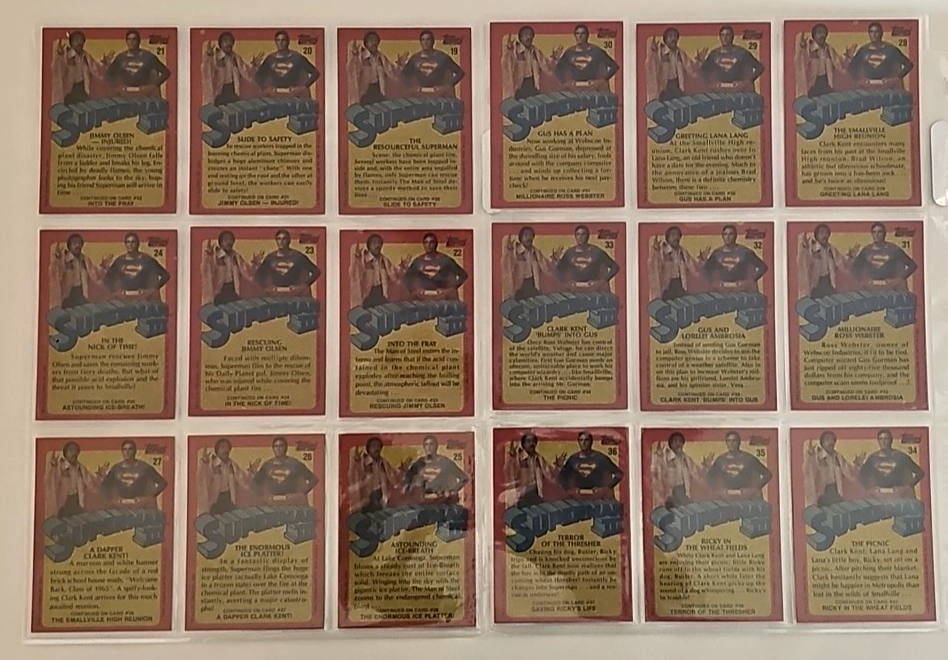 21
SUPERMAN III
JIMMY OLSEN
— INJURED!
While covering the chemical
plant disaster, Jimmy Olsen falls
from a ladder and breaks his leg. En-
circled by deadly flames, the young
photographer looks to the sky, hop-
ing his friend Superman will arrive in
time
CONTINUED ON CARD #22
INTO THE FRAY
20
SUPERMAN III
SLIDE TO SAFETY
To rescue workers trapped in the
burning chemical plant, Superman dis-
lodges a huge aluminum chimney and
creates an instant "chute". With one
end resting on the roof and the other at
ground level, the workers can easily
slide to safety!
CONTINUED ON CARD #21
JIMMY OLSEN — INJURED!
19
SUPERMAN III
THE
RESOURCEFUL SUPERMAN
Scene: the chemical plant fire.
Several workers have been trapped in-
side and, with the entire area engulfed
by flames, only Superman can rescue
them. Instantly, the Man of Steel de-
vises a speedy method to save their
lives
CONTINUED ON CARD #20
SLIDE TO SAFETY
30
SUPERMAN III
GUS HAS A PLAN
Now working at Webscoe In-
dustries, Gus Gorman, depressed at
the dwindling size of his salary, fools
around with the company computer
. . . and winds up collecting a for-
tune when he receives his next pay-
check!
CONTINUED ON CARD #31
MILLIONAIRE ROSS WEBSTER
29
SUPERMAN III
GREETING LANA LANG
At the Smallville High re-
union, Clark Kent rushes over to
Lana Lang, an old friend who doesn't
have a date for the evening. Much to
the annoyance of a jealous Brad
Wilson, there is a definite chemistry
between these two . . .
CONTINUED ON CARD #30
GUS HAS A PLAN
28
SUPERMAN III
THE SMALLVILLE
HIGH REUNION
Clark Kent encounters many
faces from his past at the Smallville
High reunion. Brad Wilson, an
athletic but obnoxious schoolmate,
has grown into a has-been jock . . .
and he's twice as obnoxious!
CONTINUED ON CARD #29
GREETING LANA LANG
24
SUPERMAN III
IN THE
NICK OF TIME!
Superman rescues Jimmy
Olsen and saves the remaining work-
ers from fiery deaths. But what of
that possible acid explosion and the
threat it poses to Smallville?
CONTINUED ON CARD #25
ASTOUNDING ICE-BREATH!
23
SUPERMAN III
RESCUING
JIMMY OLSEN
Faced with multiple dilem-
mas, Superman flies to the rescue of
his Daily Planet pal, Jimmy Olsen,
who was injured while covering the
chemical plant fire . . .
CONTINUED ON CARD #24
IN THE NICK OF TIME!
22
SUPERMAN III
INTO THE FRAY
The Man of Steel enters the in-
ferno and learns that if the acid con-
tained in the chemical plant
explodes after reaching the boiling
point, the atmospheric fallout will be
devastating . . .
CONTINUED ON CARD #23
RESCUING JIMMY OLSEN
33
SUPERMAN III
CLARK KENT
'BUMPS' INTO GUS
Once Ross Webster has control
of the satellite, Vulcan, he can direct
the world's weather and cause major
calamities. First Gus Gorman needs an
obscure, unnoticeable place to work his
computer wizardry . . . like Smallville,
where Clark Kent accidentally bumps
into the arriving Mr. Gorman.
CONTINUED ON CARD #34
THE PICNIC
32
SUPERMAN III
GUS AND
LORELEI AMBROSIA
Instead of sending Gus Gorman
to jail, Ross Webster decides to use the
computer genius in a scheme to take
control of a weather satellite. Also in
on this plan to increase Webster's mil-
lions are his girlfriend, Lorelei Ambro-
sia, and his spinster sister, Vera . . .
CONTINUED ON CARD #33
CLARK KENT 'BUMPS' INTO GUS
31
SUPERMAN III
MILLIONAIRE
ROSS WEBSTER
Ross Webster, owner of
Webscoe Industries, is fit to be tied.
Computer wizard Gus Gorman has
just ripped off eighty-five thousand
dollars from his company, and the
computer scam seems foolproof . . .!
CONTINUED ON CARD #32
GUS AND LORELEI AMBROSIA
27
SUPERMAN III
A DAPPER
CLARK KENT!
A maroon and white banner
strung across the facade of a red
brick school house reads, "Welcome
Back, Class of 1965". A spiffy-look-
ing Clark Kent arrives for this much
awaited reunion.
CONTINUED ON CARD #28
THE SMALLVILLE HIGH REUNION
26
SUPERMAN III
THE ENORMOUS
ICE PLATTER!
In a fantastic display of
strength, Superman flings the huge
ice platter (actually Lake Comonga
in a frozen state) over the fire at the
chemical plant. The platter melts in-
stantly, averting a major catastro-
phe!
CONTINUED ON CARD #27
A DAPPER CLARK KENT!
25
SUPERMAN III
ASTOUNDING
ICE-BREATH
At Lake Comonga, Superman
blows a steady gust of Ice-Breath
which freezes the entire surface
solid. Winging into the sky with the
gigantic ice platter, The Man of Steel
zooms to the endangered chemical
plant . . .
CONTINUED ON CARD #26
THE ENORMOUS ICE PLATTER!
36
SUPERMAN III
TERROR
OF THE THRESHER
Chasing his dog, Buster, Ricky
trips and is knocked unconscious by
the fall. Clark Kent now realizes that
the boy is in the deadly path of an on-
coming wheat thresher! Instantly he
changes into Superman . . . and a res-
cue is underway!
CONTINUED ON CARD #37
SAVING RICKY'S LIFE
35
SUPERMAN III
RICKY IN
THE WHEAT FIELDS
While Clark Kent and Lana
are enjoying their picnic, little Ricky
runs off to the wheat fields with his
dog, Buster. A short while later the
hearing of Clark Kent picks up the
sound of a dog whimpering . . . Ricky's
in trouble!
CONTINUED ON CARD #36
TERROR OF THE THRESHER
34
SUPERMAN III
THE PICNIC
Clark Kent, Lana Lang and
Lana's little boy, Ricky, set off on a
picnic. After pitching their blanket,
Clark hesitantly suggests that Lana
would be happier in Metropolis than
lost in the wilds of Smallville . . .
CONTINUED ON CARD #35
RICKY IN THE WHEAT FIELDS